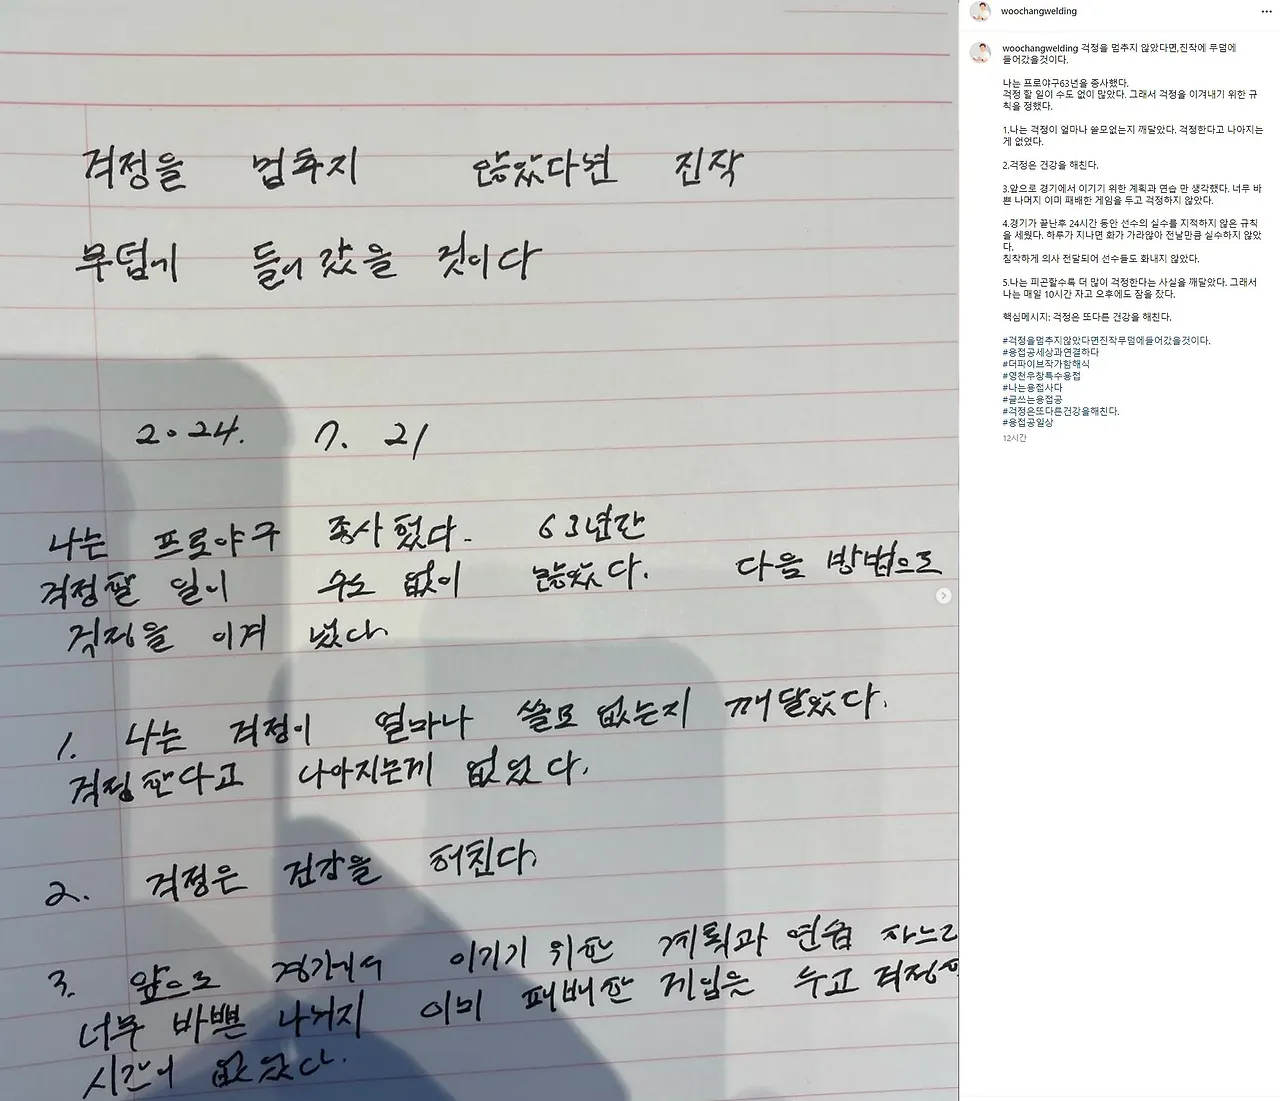 걱정을 멈추지 않았다면 진작
무덤에 들어갔을 것이다
2024. 7. 21
나는 프로야구 종사했다. 63년간
걱정할 일이 수도 없이 많았다. 다음 방법으로
걱정을 이겨 냈다.
1. 나는 걱정이 얼마나 쓸모 없는지 깨달았다.
걱정한다고 나아지는게 없었다.
2. 걱정은 건강을 해친다.
3. 앞으로 경기에서 이기기 위한 계획과 연습 하느라
너무 바쁜 나머지 이미 패배한 게임을 두고 걱정
시간이 없었다.
woochangwelding
woochangwelding 걱정을 멈추지 않았다면,진작에 무덤에
들어갔을것이다.
나는 프로야구63년을 종사했다.
걱정 할 일이 수도 없이 많았다. 그래서 걱정을 이겨내기 위한 규
칙을 정했다.
1.나는 걱정이 얼마나 쓸모없는지 깨달았다. 걱정한다고 나아지는
게 없었다.
2.걱정은 건강을 해친다.
3.앞으로 경기에서 이기기 위한 계획과 연습 만 생각했다. 너무 바
쁜 나머지 이미 패배한 게임을 두고 걱정하지 않았다.
4.경기가 끝난후 24시간 동안 선수의 실수를 지적하지 않은 규칙
을 세웠다. 하루가 지나면 화가 가라앉아 전날만큼 실수하지 않았
다.
침착하게 의사 전달되어 선수들도 화내지 않았다.
5.나는 피곤할수록 더 많이 걱정한다는 사실을 깨달았다. 그래서
나는 매일 10시간 자고 오후에도 잠을 잤다.
핵심메시지: 걱정은 또다른 건강을 해친다.
#걱정을멈추지않았다면진작무덤에들어갔을것이다.
#용접공세상과연결하다
#더파이브작가함해식
#영천우창특수용접
#나는용접사다
#글쓰는용접공
#걱정은또다른건강을해친다.
#용접공일상
12시간